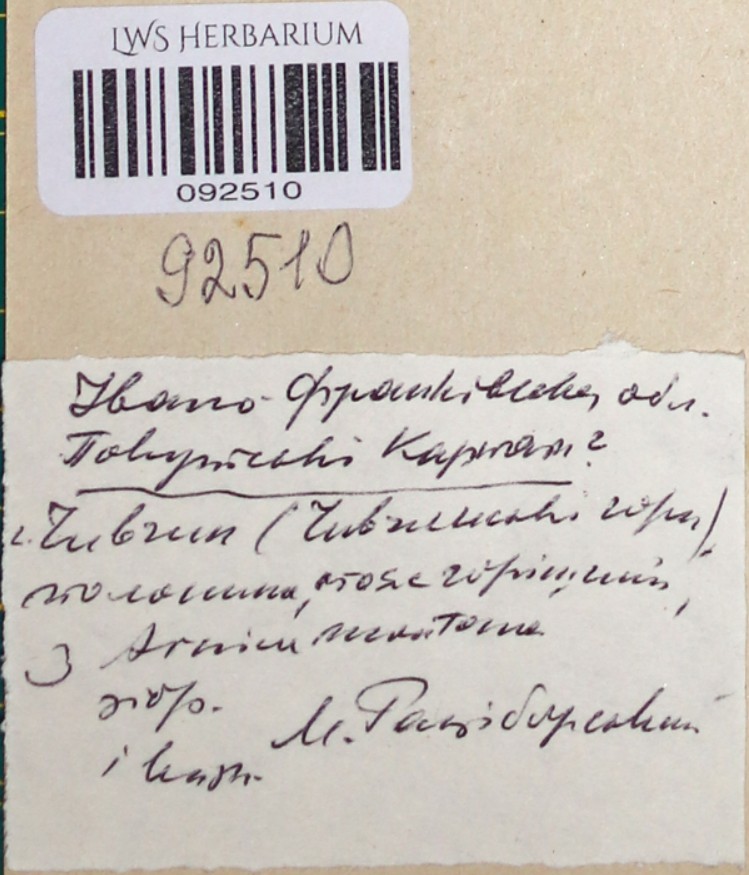 LWS HERBARIUM
092510
92510
Івано-Франківська обл.
Покутські Карпати?
г. Чивчин (Чивчинські гори)
полонина,
з Arnica montana
М. Рацiборський